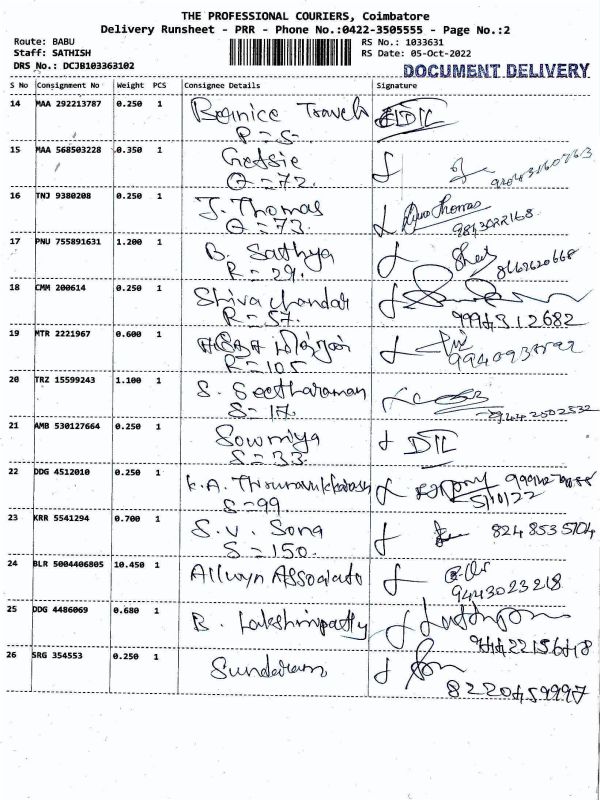 THE PROFESSIONAL COURIERS, Coimbatore
Delivery Runsheet - PRR - Phone No.:0422-3505555 - Page No.:2
Route: BABU
Staff: SATHISH
DRS No.: DCJB103363102
RS No.: 1033631
RS Date: 05-Oct-2022
DOCUMENT DELIVERY
S No Consignment No Weight PCS Consignee Details Signature
14 MAA 292213787 0.250 1 Bernice Travels
P = 5.
15 MAA 568503228 0.350 1 Getsie
Q = 72.
16 TNJ 9380208 0.250 1 J. Thomas
Q = 73. 9843022168
17 PNU 755891631 1.200 1 B. Sathya
R = 29. 8662620668
18 CMM 200614 0.250 1 Shiva chandar
R = 57. 9994312682
19 MTR 2221967 0.600 1
R = 105
20 TRZ 15599243 1.100 1 S. Seetharaman
S = 17. 9442502532
21 AMB 530127664 0.250 1 Sowmiya DTL
S = 33.
22 DDG 4512010 0.250 1 K.A. Thirunavukkarasu
S = 99 5/10/22
23 KRR 5541294 0.700 1 S. V. Sona 824 853 5704
S = 150.
24 BLR 5004406805 10.450 1 Allwyn Associate
9443023218
25 DDG 4486069 0.680 1 B. Lakshmipathy
9442215618
26 SRG 354553 0.250 1 Sundaram
8220459997